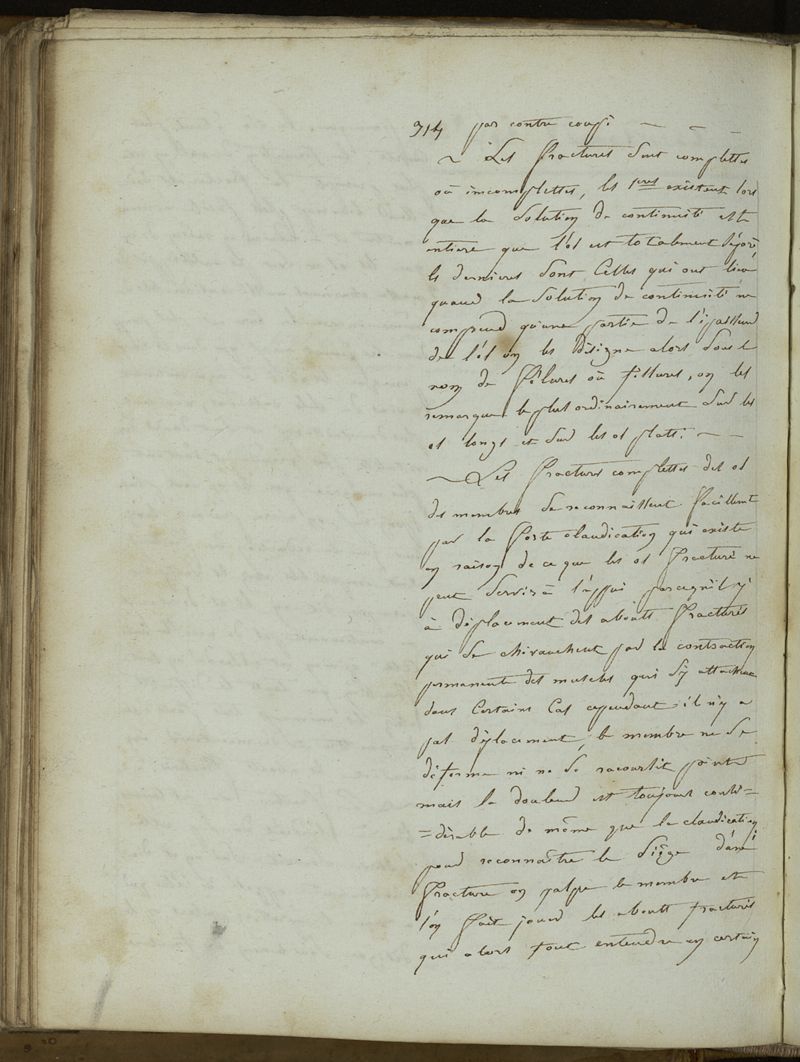 314 par contre coup. — — —
~ Les fractures sont complettes
où incomplettes, les 1res existent lors
que la solution de continuité est
entiere que l'os est totalement séparé
les dernieres sont Celles qui ont lieu
quand la solution de continuité ne
comprend qu'une partie de l'épaisseur
de l'os on les Désigne alors sous le
nom de fêlures où fissures, on les
remarque le plus ordinairement sur les
os longs et sur les os plats. — —
~ Les fractures complettes des os
des membres se reconnaissent facilement
par la forte claudication qui existe
en raison de ce que les os fracturé ne
peut servir à l'appui parcequ'il y
à déplacement des abouts fracturés
qui se chevauchent par la contraction
permanente des muscles qui s'y attachent
dans Certains Cas cependant il n'y a
pas déplacement, le membre ne se
déforme ni ne se racourcit point
mais la douleur est toujours consi=
=dérable de même que la claudication
pour reconnaître le siège d'une
fracture on palpe le membre et
l'on fait jouer les abouts fracturés
qui alors font entendre un certain